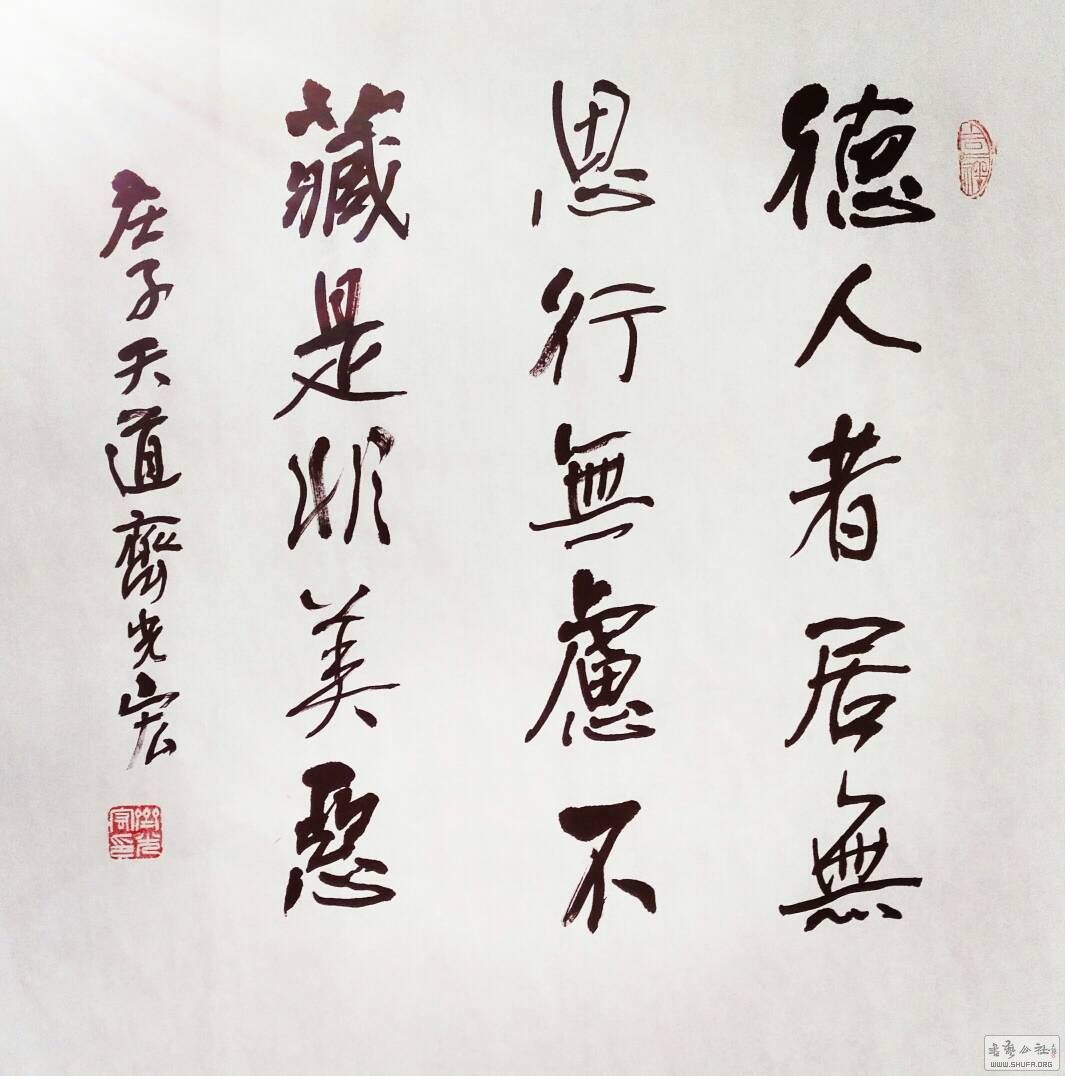 德人者居無
思行無慮不
藏是非美惡
庄子天道齋光宏
吉祥
書藝公社
WWW.SHUFA.ORG